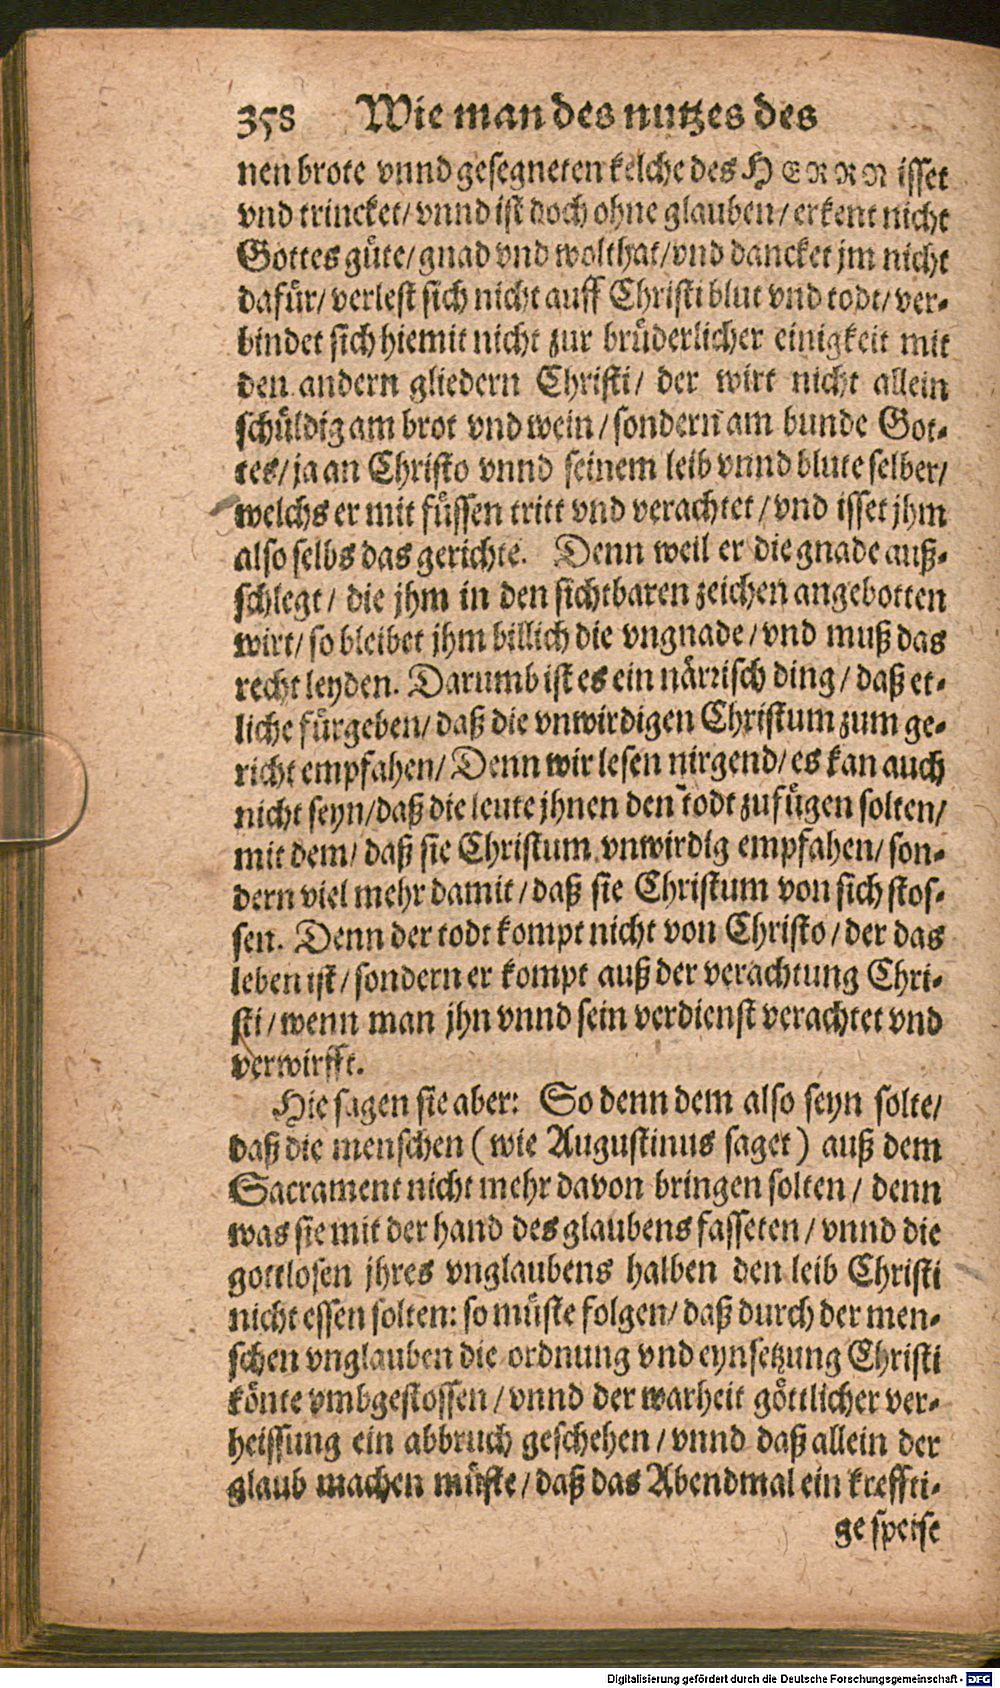 358 Wie man des nutzes des
nen brote vnnd gesegneten kelche des HERRN isset
vnd trincket/ vnnd ist doch ohne glauben/ erkent nicht
Gottes güte/ gnad vnd wolthat/ vnd dancket jm nicht
dafür/ verlest sich nicht auff Christi blut vnd todt/ ver-
bindet sich hiemit nicht zur brüderlicher einigkeit mit
den andern gliedern Christi/ der wirt nicht allein
schüldig am brot vnd wein/ sondern am bunde Got-
tes/ ja an Christo vnnd seinem leib vnnd blute selber/
welchs er mit füssen tritt vnd verachtet/ vnd isset jhm
also selbs das gerichte. Denn weil er die gnade auß-
schlegt/ die jhm in den sichtbaren zeichen angebotten
wirt/ so bleibet jhm billich die vngnade/ vnd muß das
recht leyden. Darumb ist es ein närrisch ding/ daß et-
liche fürgeben/ daß die vnwirdigen Christum zum ge-
richt empfahen/ Denn wir lesen nirgend/ es kan auch
nicht seyn/ daß die leute jhnen den todt zufügen solten/
mit dem/ daß sie Christum vnwirdig empfahen/ son-
dern viel mehr damit/ daß sie Christum von sich stos-
sen. Denn der todt kompt nicht von Christo/ der das
leben ist/ sondern er kompt auß der verachtung Chri-
sti/ wenn man jhn vnnd sein verdienst verachtet vnd
verwirfft.
Hie sagen sie aber: So denn dem also seyn solte/
daß die menschen (wie Augustinus saget) auß dem
Sacrament nicht mehr davon bringen solten/ denn
was sie mit der hand des glaubens fasseten/ vnnd die
gottlosen jhres vnglaubens halben den leib Christi
nicht essen solten: so müste folgen/ daß durch der men-
schen vnglauben die ordnung vnd eynsetzung Christi
könte vmbgestossen/ vnnd der warheit göttlicher ver-
heissung ein abbruch geschehen/ vnnd daß allein der
glaub machen müste/ daß das Abendmal ein krefftі-
ge speise
Digitalisierung gefördert durch die Deutsche Forschungsgemeinschaft - DFG